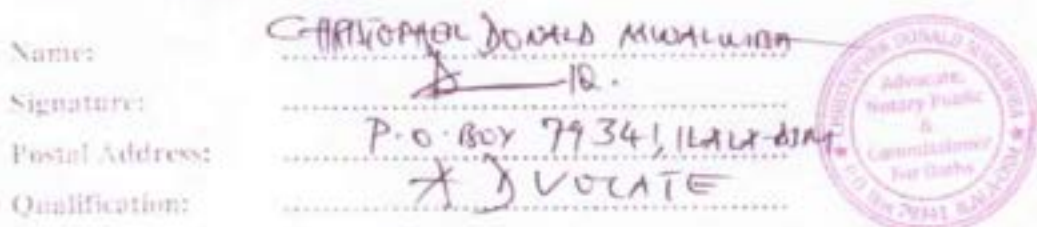 Name: CHRISTOPHER DONALD MWALWIBA
Signature:
Postal Address: P.O. BOX 79341, ILALA-DSM
Qualification: ADVOCATE
CHRISTOPHER DONALD MWALWIBA
Advocate,
Notary Public
&
Commissioner
For Oaths
P.O. BOX 79341 ILALA-DSM